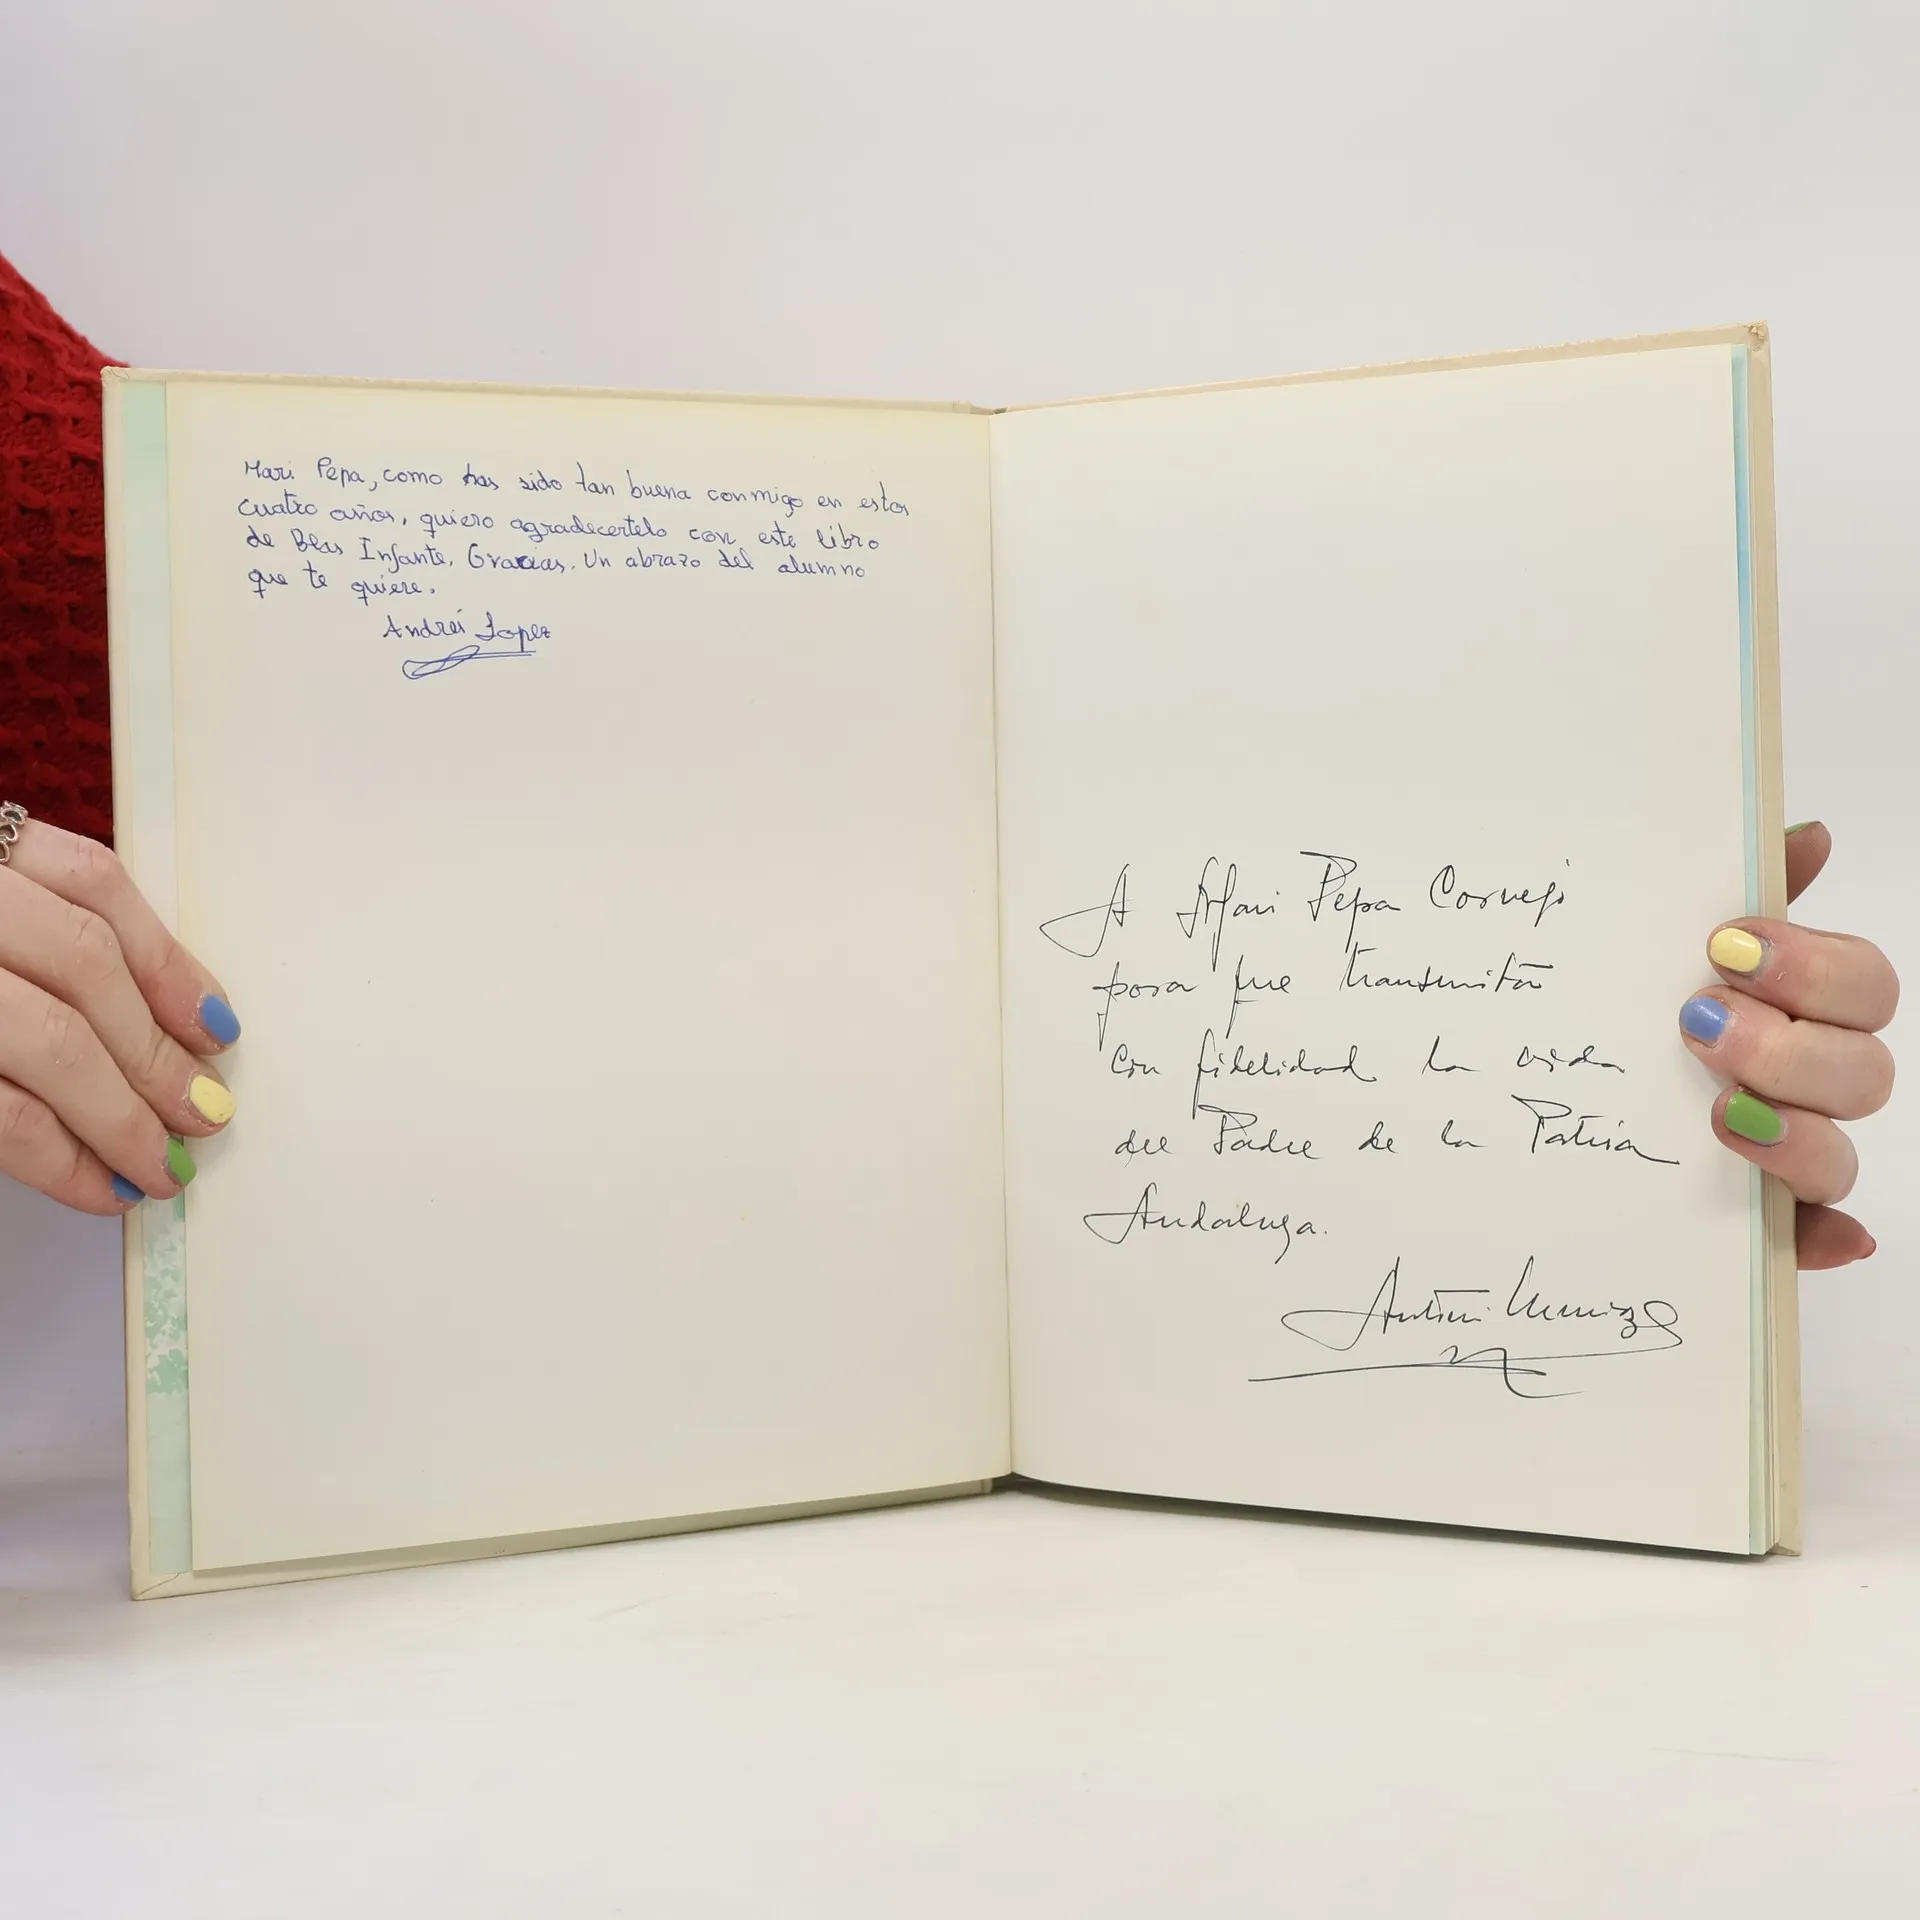 Mari Pepa, como has sido tan buena conmigo en estos
cuatro años, quiero agradecertelo con este libro
de Blas Infante. Gracias. Un abrazo del alumno
que te quiere.
Andrés Lopez
A Mari Pepa Cornejo
para que transmita
con fidelidad la vida
del Padre de la Patria
Andaluza.
Antonio